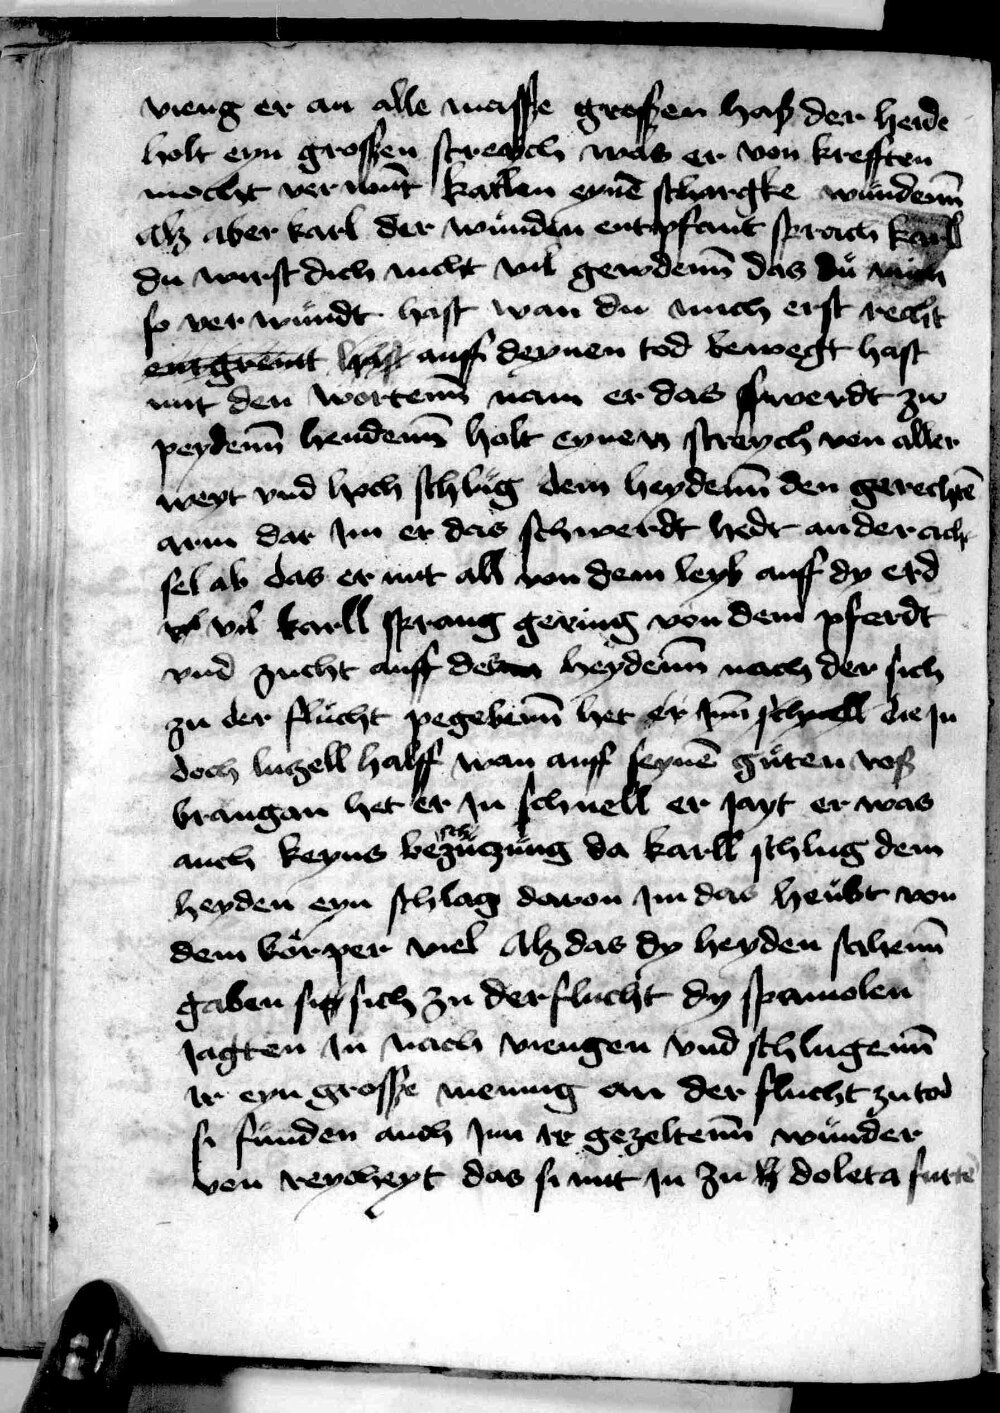 vieng er an alle masse grossen hass der heide
holt eyn grossen streych was er von krefften
mocht verwūt karlen eynē starcke wundenn
Alß aber karl der wunden entpfant sprach karll
du wirst dich nicht vil gewdenn das du mich
so ver wundt hast wan du mich erst recht
auff deynen tod bewegt hast
mit den wortenn nam er das swerdt zu
peydenn hendenn holt eynen streych von aller
weyt vnd hoch schlug dem heydenn den gerechtē
arm dar jm er das schwerdt hedt an der ach
sel ab das er mit all von dem leyb auff dy erd
vil karll sprang gering von dem pferdt
vnd zucht auff den heydenn nach der sich
zu der flucht pegebenn het er jm schnell die jn
doch luczell halff wan auff seynē guten roß
brangan het er jn schnell er jayt er was
auch keyns beschuczung da karll schlug dem
heyden eyn schlag davon jm das heubt von
dem körper viel Alß das dy heyden sahenn
gaben sy sich zu der flucht dy spaniolen
jagten jn nach viengen vnd schlugenn
jr eyn grosse menng an der flucht zu tod
si funden auch jnn jr gezeltenn wunder
von reycheyt das si mit jn zu doleta furtē